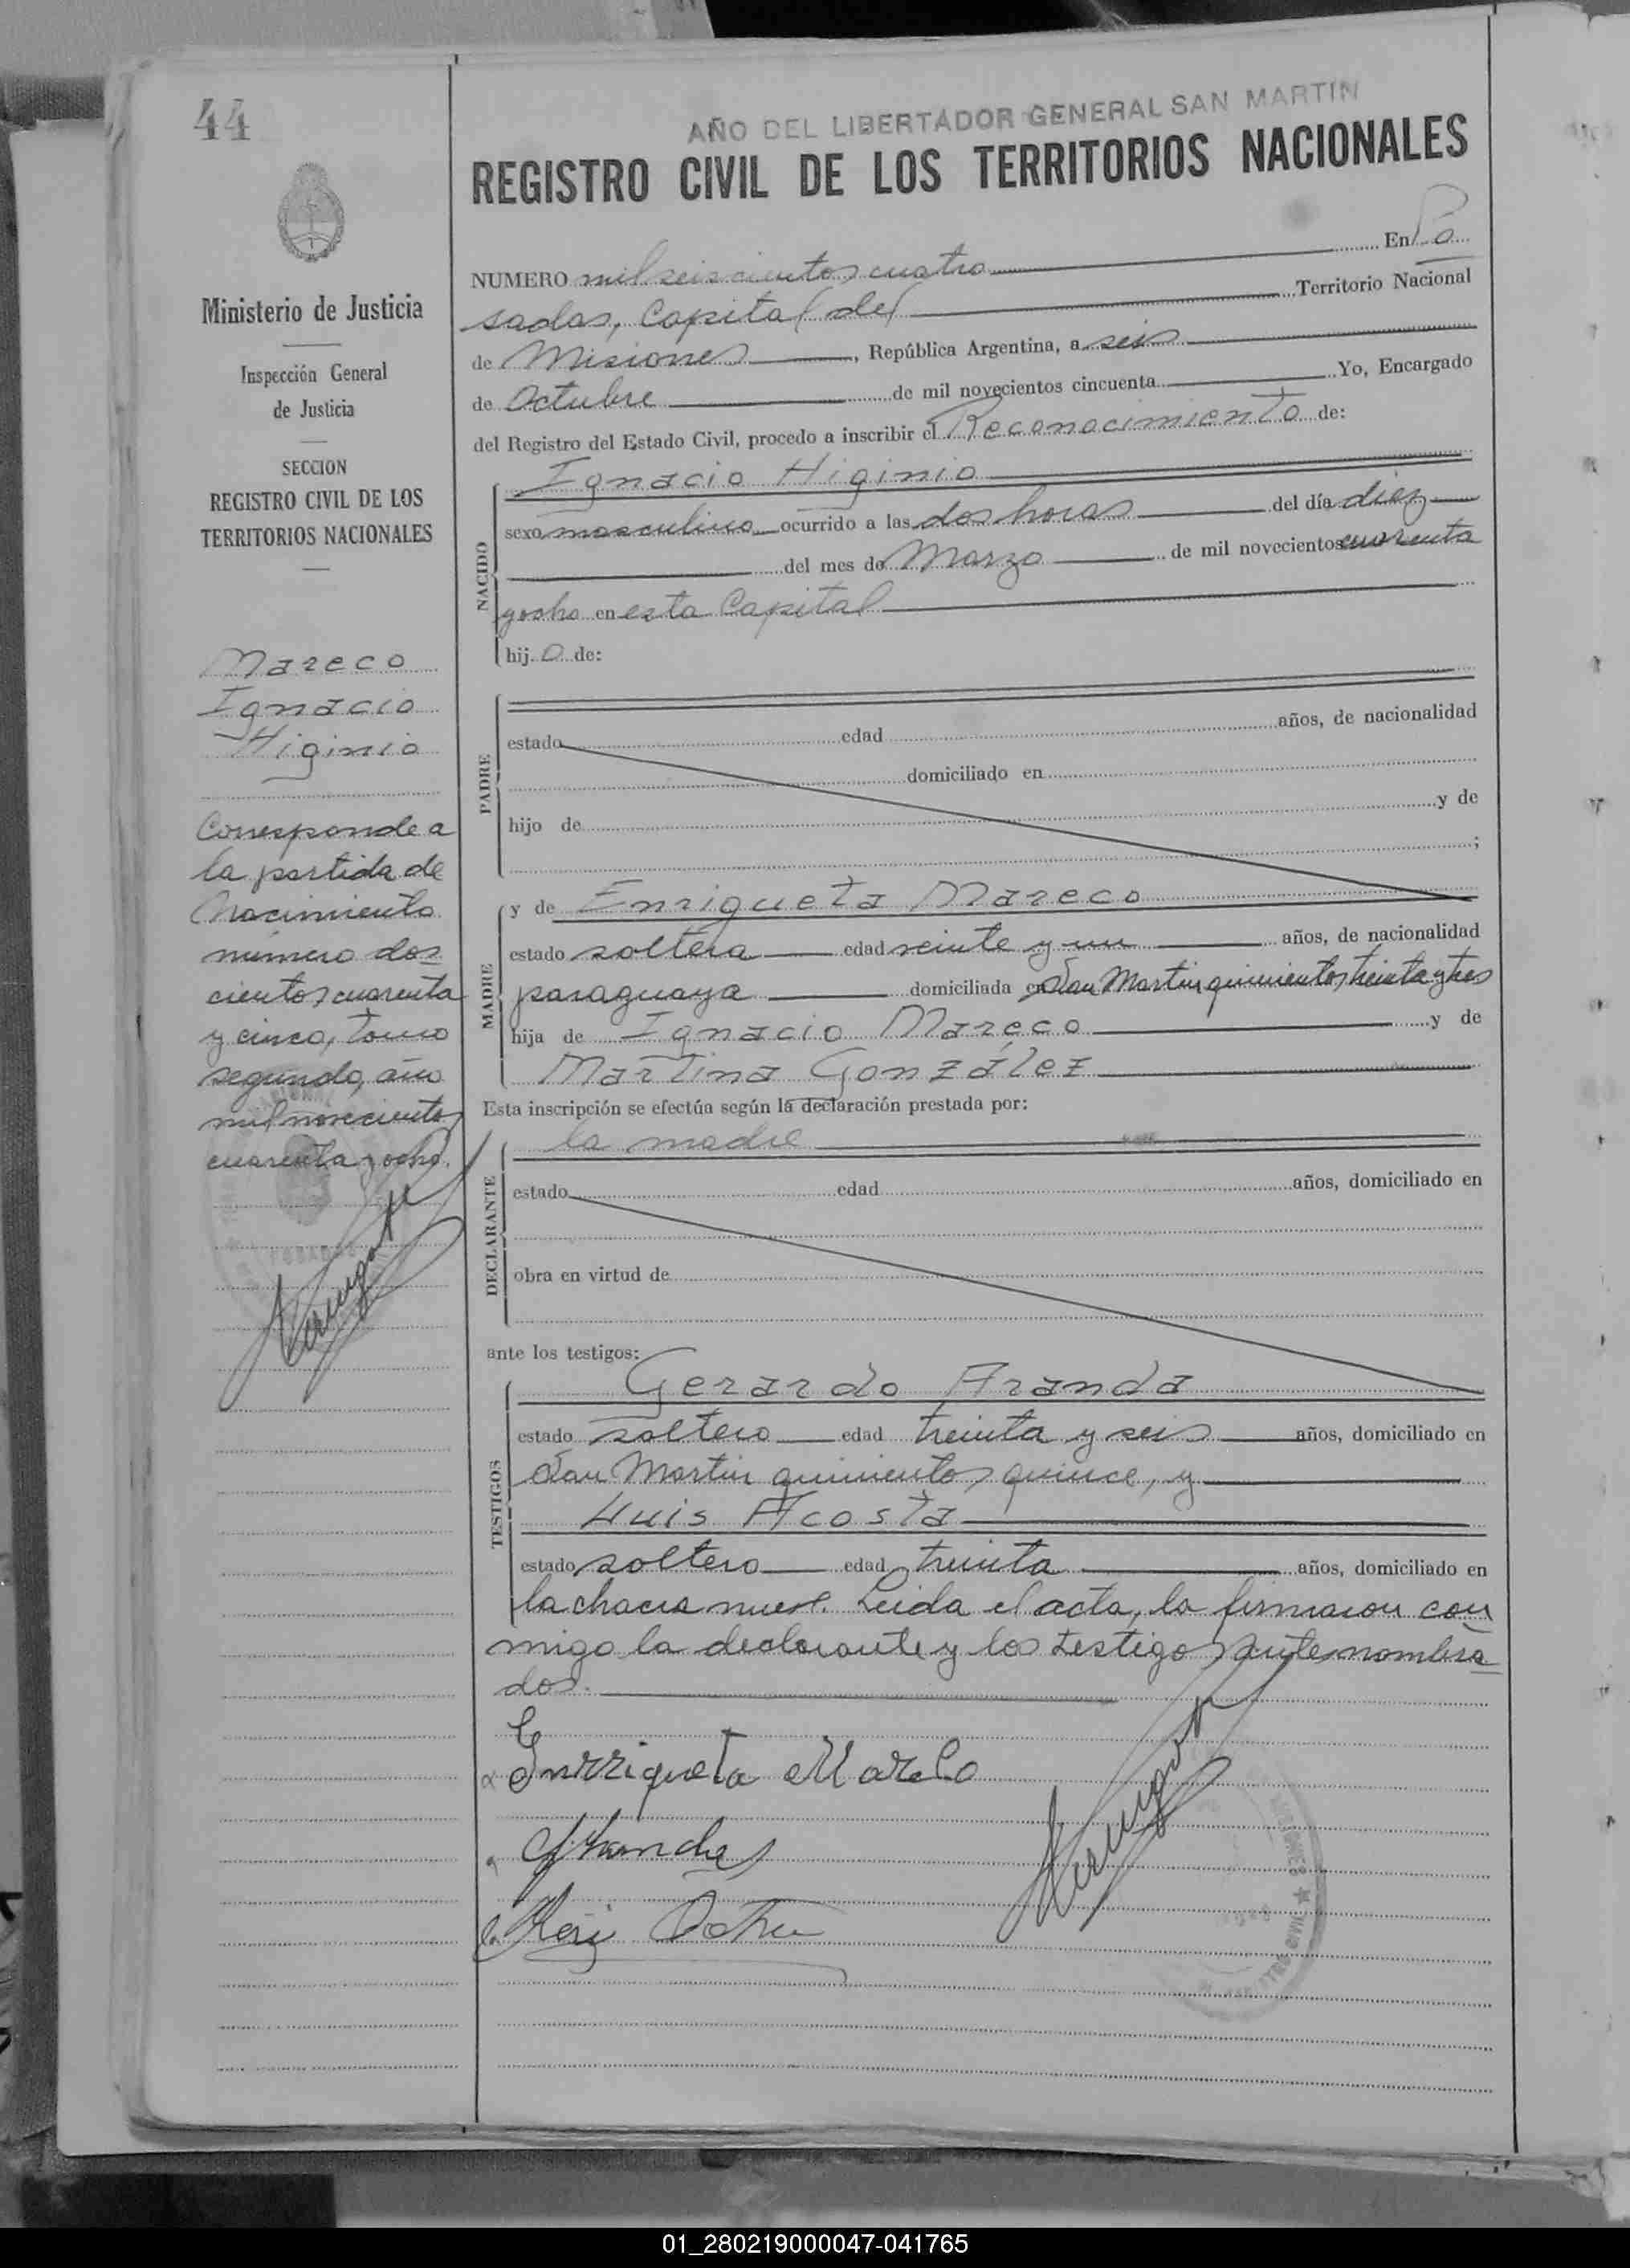 44
AÑO DEL LIBERTADOR GENERAL SAN MARTIN
REGISTRO CIVIL DE LOS TERRITORIOS NACIONALES
Ministerio de Justicia
Inspección General
de Justicia
SECCION
REGISTRO CIVIL DE LOS
TERRITORIOS NACIONALES
Mareco
Ignacio
Higinio
Corresponde a
la partida de
Nacimiento
número dos
cientos cuarenta
y cinco, tomo
segundo, año
mil novecientos
cuarenta y ocho.
NUMERO mil seiscientos cuatro En Po
sadas, Capital del Territorio Nacional
de Misiones, República Argentina, a seis
de Octubre de mil novecientos cincuenta Yo, Encargado
del Registro del Estado Civil, procedo a inscribir el Reconocimiento de:
NACIDO
Ignacio Higinio
sexo masculino ocurrido a las dos horas del día diez
del mes de Marzo de mil novecientos cuarenta
y ocho en esta Capital
hij o de:
PADRE
estado edad años, de nacionalidad
domiciliado en
hijo de y de
;
MADRE
y de Enriqueta Mareco
estado soltera edad veinte y un años, de nacionalidad
paraguaya domiciliada en San Martin quinientos treinta y tres
hija de Ignacio Mareco y de
Martina González
Esta inscripción se efectúa según la declaración prestada por:
DECLARANTE
la madre
estado edad años, domiciliado en
obra en virtud de
ante los testigos:
TESTIGOS
Gerardo Aranda
estado soltero edad treinta y seis años, domiciliado en
San Martin quinientos quince, y
Luis Acosta
estado soltero edad treinta años, domiciliado en
la chacra nueve. Leida el acta, la firmaron con
migo la declarante y los testigos antes nombra
dos.
Enrriqueta
MISIONES
01_280219000047-041765